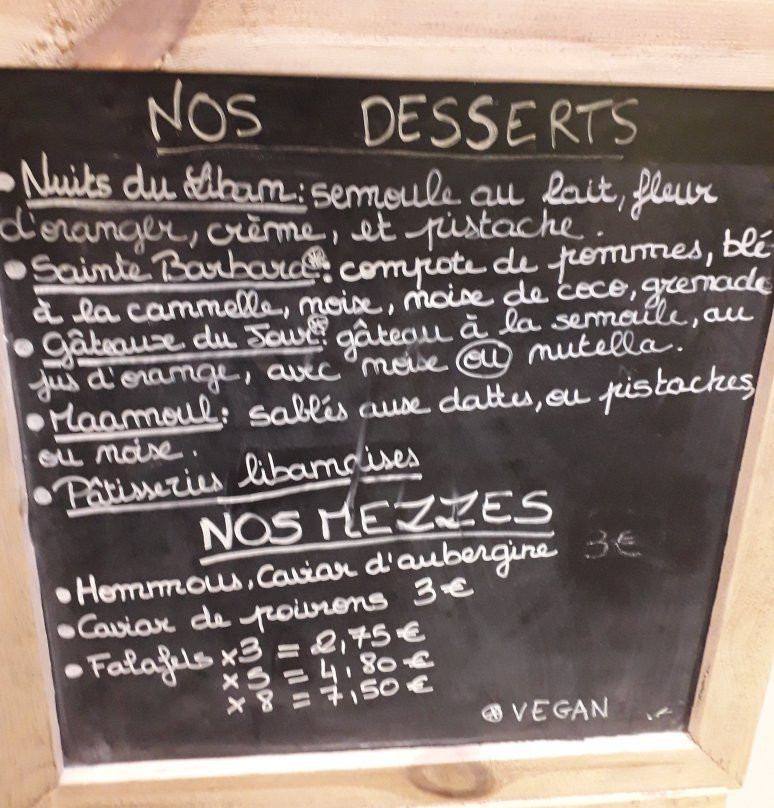 NOS DESSERTS
• Nuits du Liban : semoule au lait, fleur
d'oranger, crème, et pistache.
• Sainte Barbara⊛ : compote de pommes, blé
à la cannelle, noix, noix de coco, grenade
• Gâteaux du Jour⊛ : gâteau à la semoule, au
jus d'orange, avec noix ou nutella.
• Maamoul : sablés aux dattes, ou pistaches,
ou noix.
• Pâtisseries libanaises
NOS MEZZES
• Hommous, Caviar d'aubergine 3€
• Caviar de poivrons 3€
• Falafels x3 = 2,75€
x5 = 4,80€
x8 = 7,50€
⊛ VEGAN